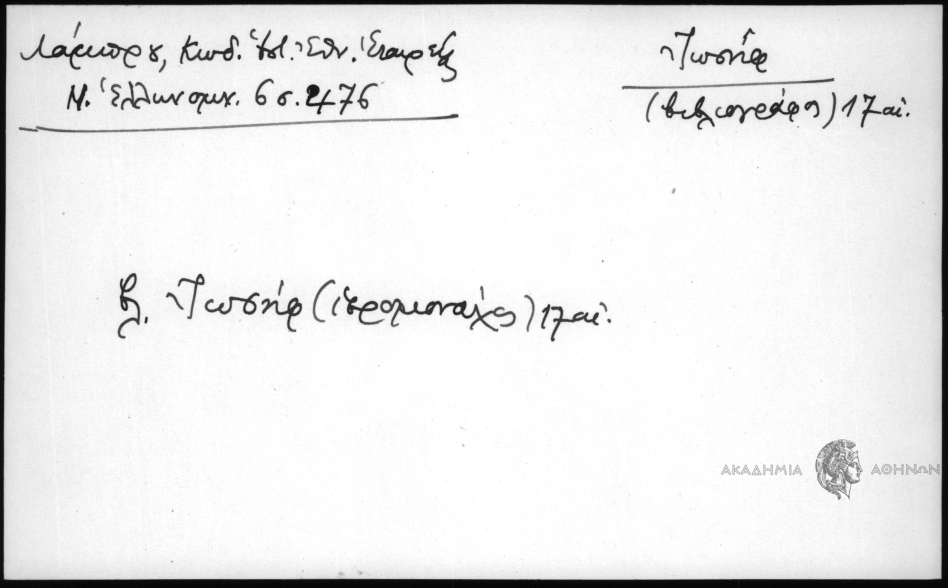 Λάμπρου, Κωδ. Ἱστ. Ἐθν. Ἑταιρείας
Ν. Ἑλληνομν. 6 σ. 476
Ἰωσήφ
(βιβλιογράφος) 17 αἰ.
βλ. Ἰωσήφ (ἱερομονάχος) 17 αἰ.
ΑΚΑΔΗΜΙΑ ΑΘΗΝΩΝ